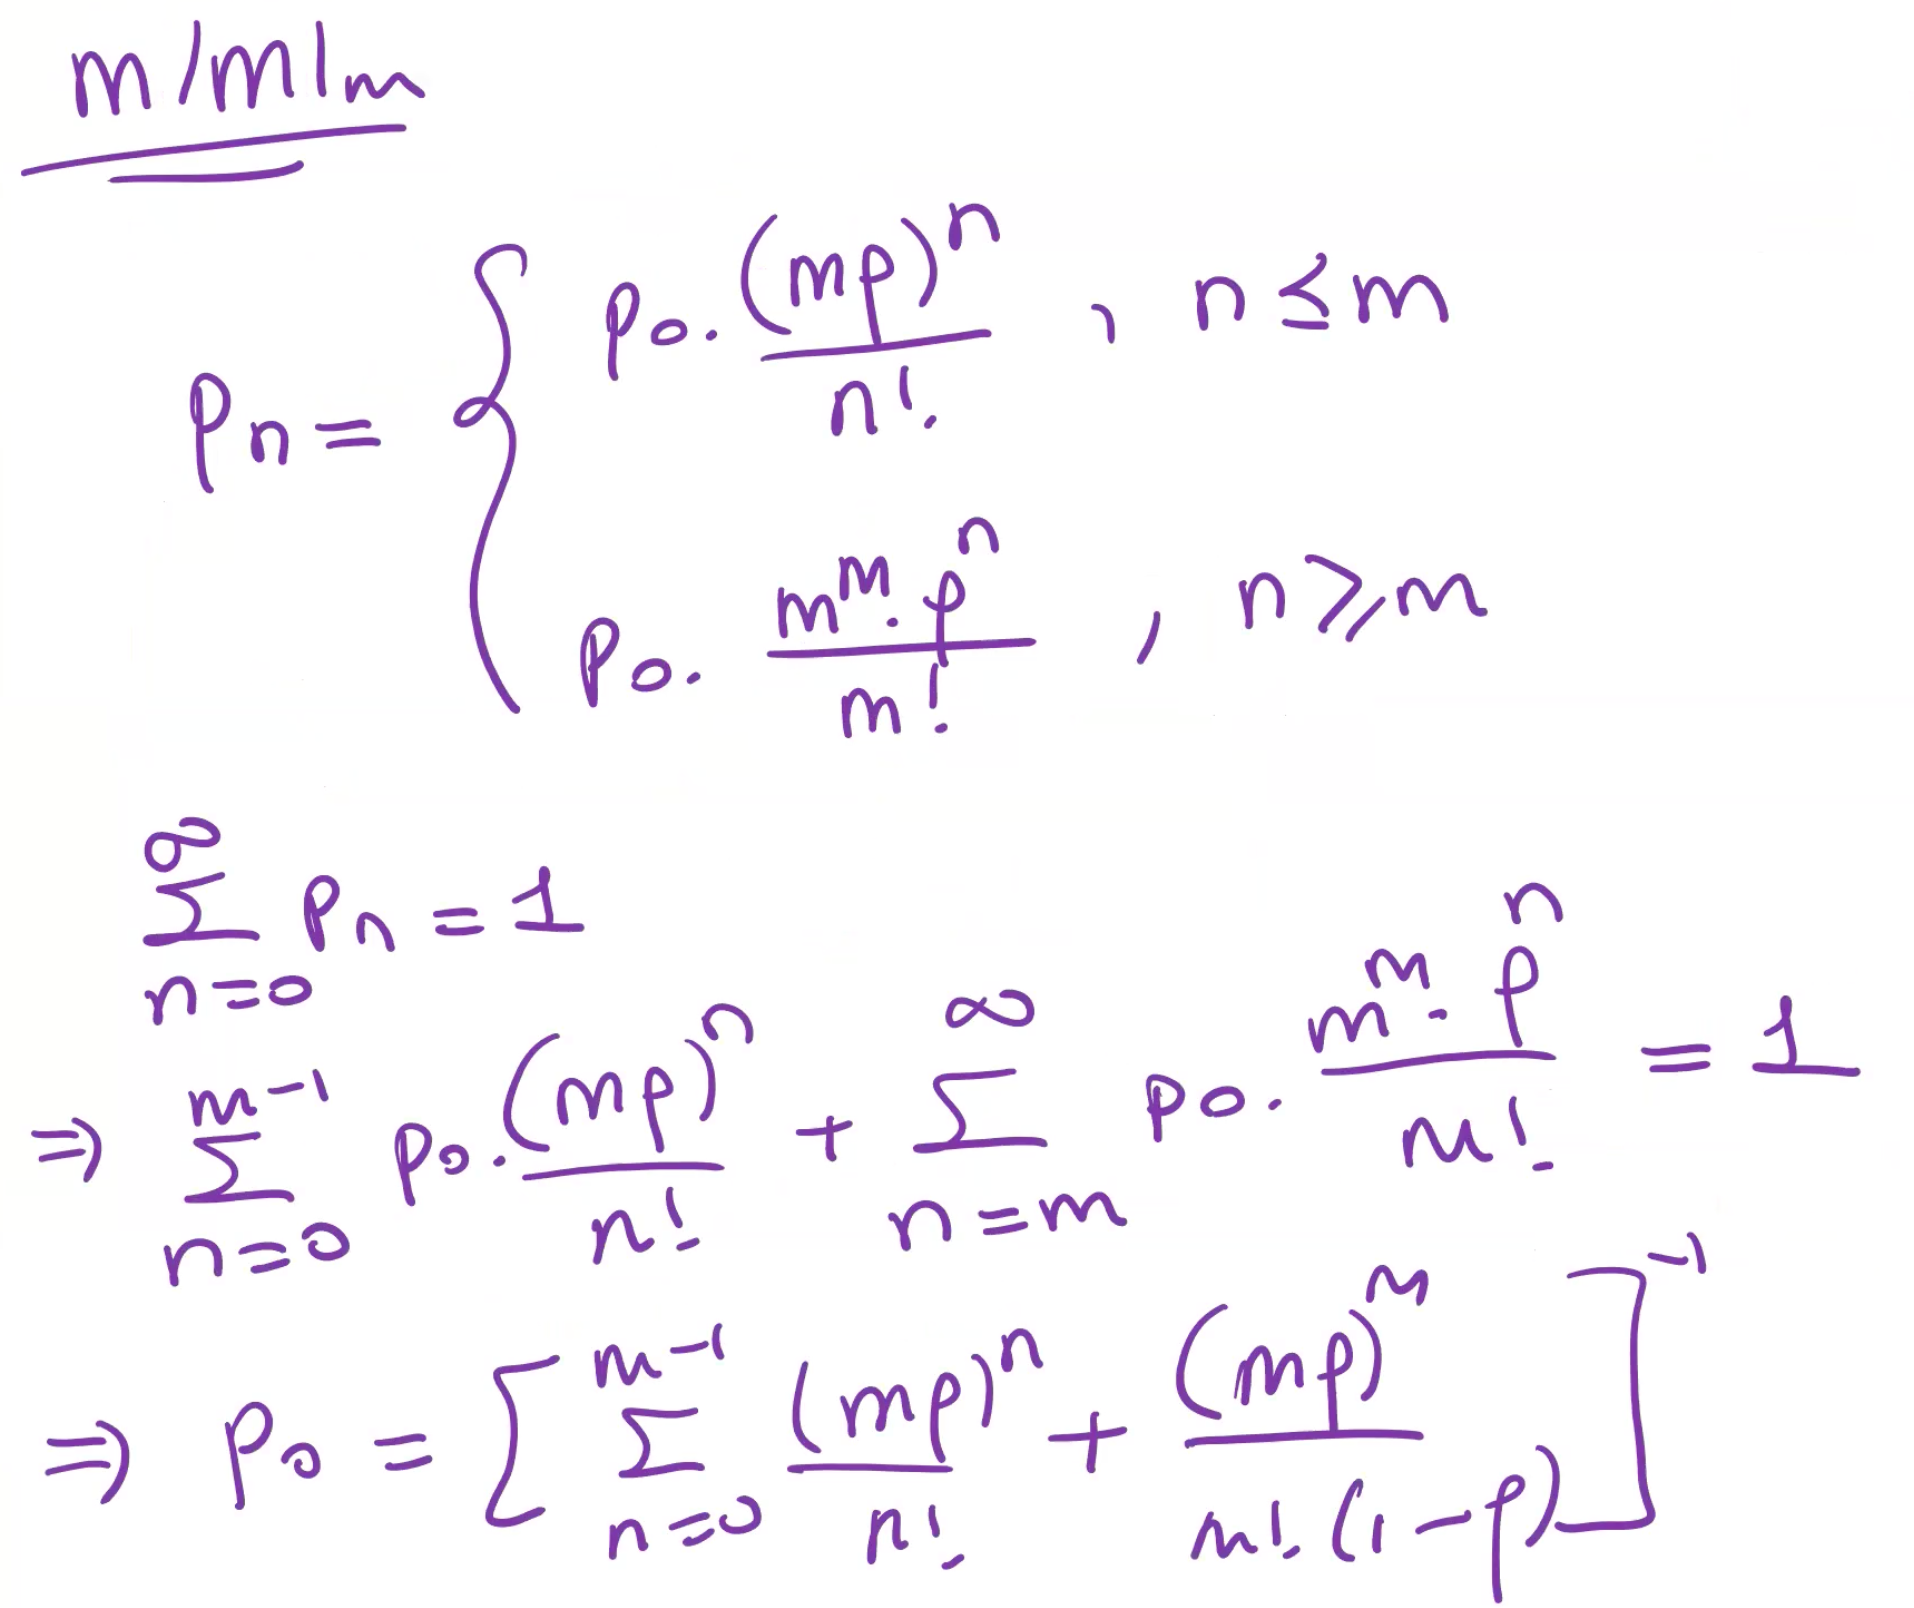 m/m/m
p_n = { p_0 . (mρ)^n / n! , n ≤ m
p_0 . m^m . ρ^n / m! , n ≥ m
∑_{n=0}^{∞} p_n = 1
⇒ ∑_{n=0}^{m-1} p_0 . (mρ)^n / n! + ∑_{n=m}^{∞} p_0 . m^m . ρ^n / m! = 1
⇒ p_0 = [ ∑_{n=0}^{m-1} (mρ)^n / n! + (mρ)^m / m! . (1-ρ) ]^{-1}